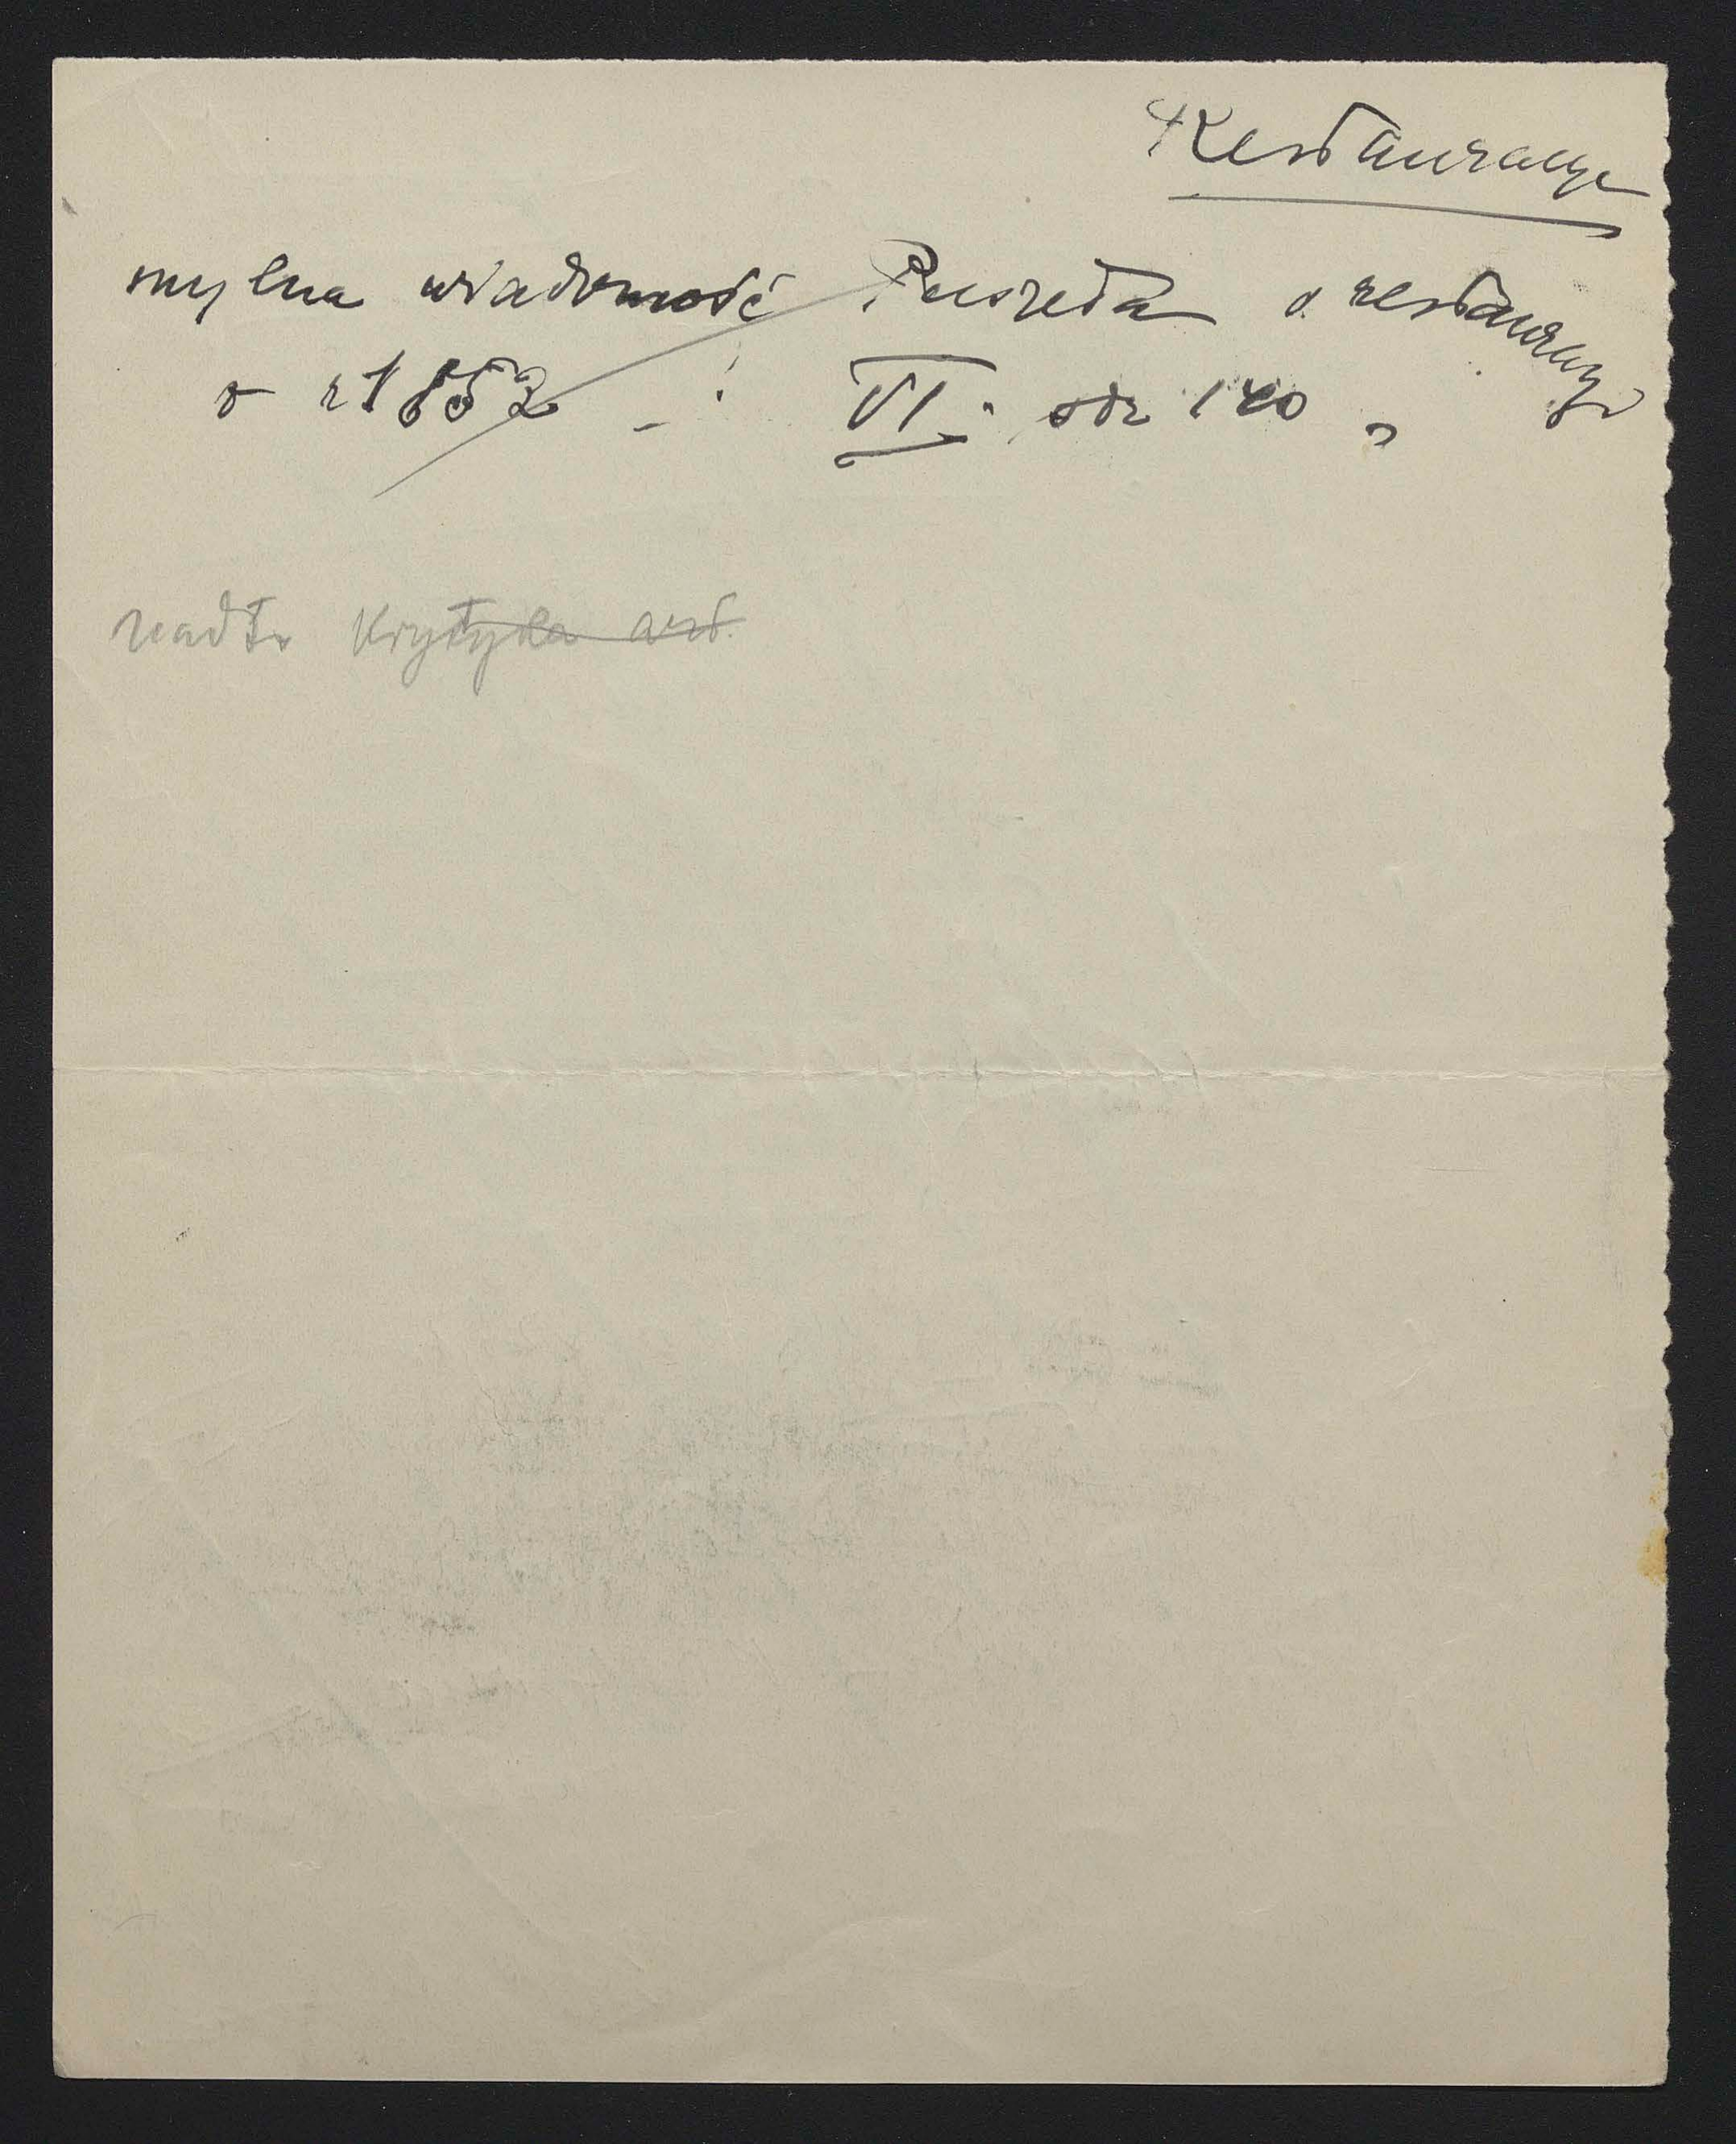 Restauracye
mylna wiadomość Puszeta o restauracyi
w r 1852 - : VI. str 140
nadto Krytyka art.